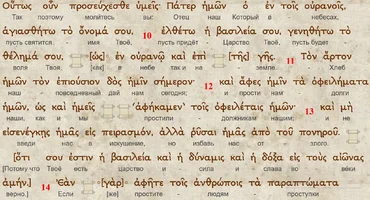 Οὕτως οὖν προσεύχεσθε ὑμεῖς· Πάτερ ἡμῶν ὁ ἐν τοῖς οὐρανοῖς,
Так поэтому молитесь вы: Отец наш Который в небесах,
ἁγιασθήτω τὸ ὄνομά σου, 10 ἐλθέτω ἡ βασιλεία σου, γενηθήτω τὸ
пусть святится имя Твоё, пусть придёт Царство Твоё, пусть будет
θέλημά σου, [ὡς] ἐν οὐρανῷ καὶ ἐπὶ [τῆς] γῆς. 11 Τὸν ἄρτον
воля Твоя, [как] в небе так и на земле. Хлеб
ἡμῶν τὸν ἐπιούσιον δὸς ἡμῖν σήμερον· 12 καὶ ἄφες ἡμῖν τὰ ὀφειλήματα
наш повседневный дай нам сегодня; и прости нам долги
ἡμῶν, ὡς καὶ ἡμεῖς ἀφήκαμεν τοῖς ὀφειλέταις ἡμῶν· 13 καὶ μὴ
наши, как и мы простили должникам нашим; и не
εἰσενέγκῃς ἡμᾶς εἰς πειρασμόν, ἀλλὰ ῥῦσαι ἡμᾶς ἀπὸ τοῦ πονηροῦ.
введи нас в искушение, но избавь нас от злого.
[ὅτι σου ἐστιν ἡ βασιλεία καὶ ἡ δύναμις καὶ ἡ δόξα εἰς τοὺς αἰῶνας
[Потому что Твоё есть Царство и сила и слава во века
ἀμήν.] 14 Ἐὰν [γὰρ] ἀφῆτε τοῖς ἀνθρώποις τὰ παραπτώματα
верно.] Если [же] простите людям проступки